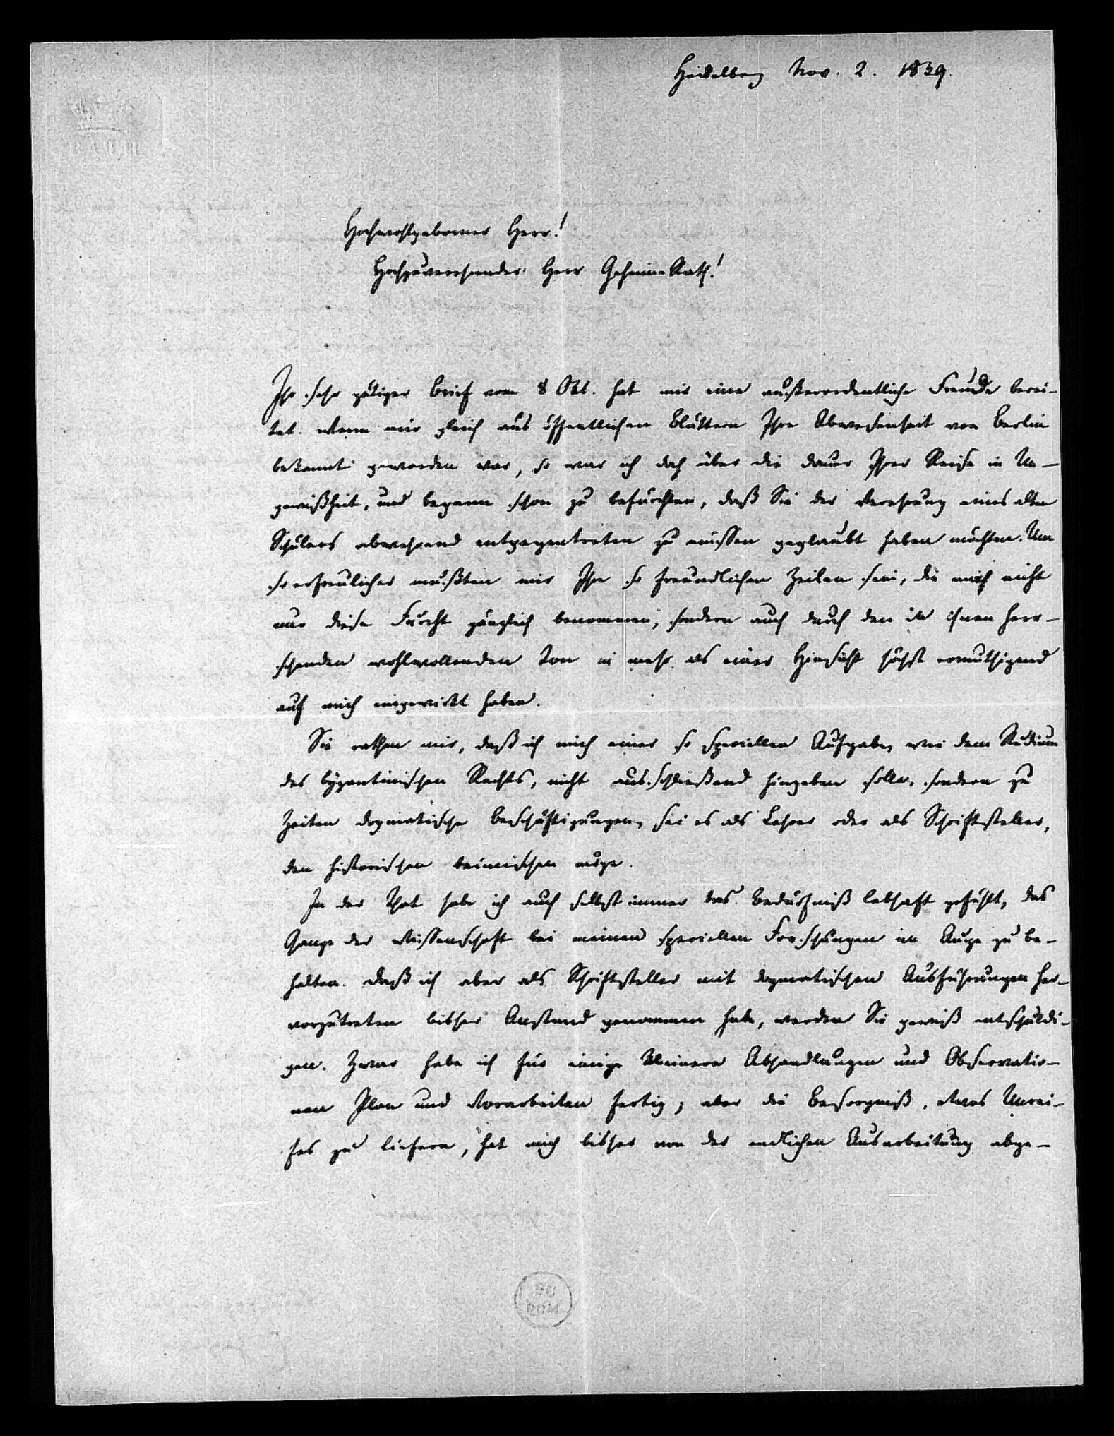 Heidelberg Nov. 2. 1839.
Hochwohlgeborner Herr!
Hochzuverehrender Herr Geheimerath!
Ihr sehr gütiger Brief vom 8 Okt. hat mir eine außerordentliche Freude berei-
tet. Wenn mir gleich aus öffentlichen Blättern Ihre Abwesenheit von Berlin
bekannt geworden war, so war ich doch über die Dauer Ihrer Reise in Un-
gewißheit, und begann schon zu befürchten, daß Sie der Verehrung eines alten
Schülers abwehrend entgegentreten zu müssen geglaubt haben möchten. Um
so erfreulicher mußten mir Ihre so freundlichen Zeilen sein, die mich nicht
nur diese Furcht gänzlich benommen, sondern auch durch den in ihnen herr-
schenden wohlwollenden Ton in mehr als einer Hinsicht höchst ermuthigend
auf mich eingewirkt haben.
Sie rathen mir, daß ich mich einer so speciellen Aufgabe, wie dem Studium
des byzantinischen Rechts, nicht ausschließend hingeben solle, sondern zu
Zeiten dogmatische Beschäftigungen, sei es als Lehrer oder als Schriftsteller,
den historischen beimischen möge.
In der That habe ich auch selbst immer das Bedürfniß lebhaft gefühlt, das
Ganze der Wissenschaft bei meinen speciellen Forschungen im Auge zu be-
halten. Daß ich aber als Schriftsteller mit dogmatischen Ausführungen her-
vorzutreten bisher Anstand genommen habe, werden Sie gewiß entschuldi-
gen. Zwar habe ich für einige kleinere Abhandlungen und Observatio-
nen Plan und Vorarbeiten fertig; aber die Besorgniß, etwas Unrei-
fes zu liefern, hat mich bisher von der endlichen Ausarbeitung abge-